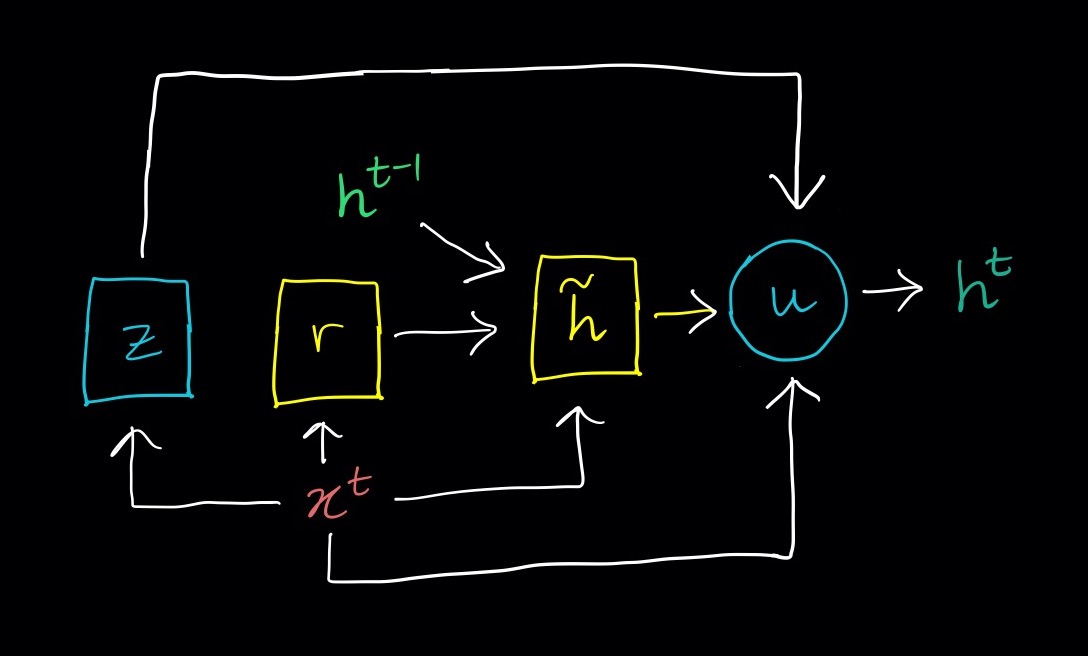 h^{t-1}
z r h̃ u h^t
x^t